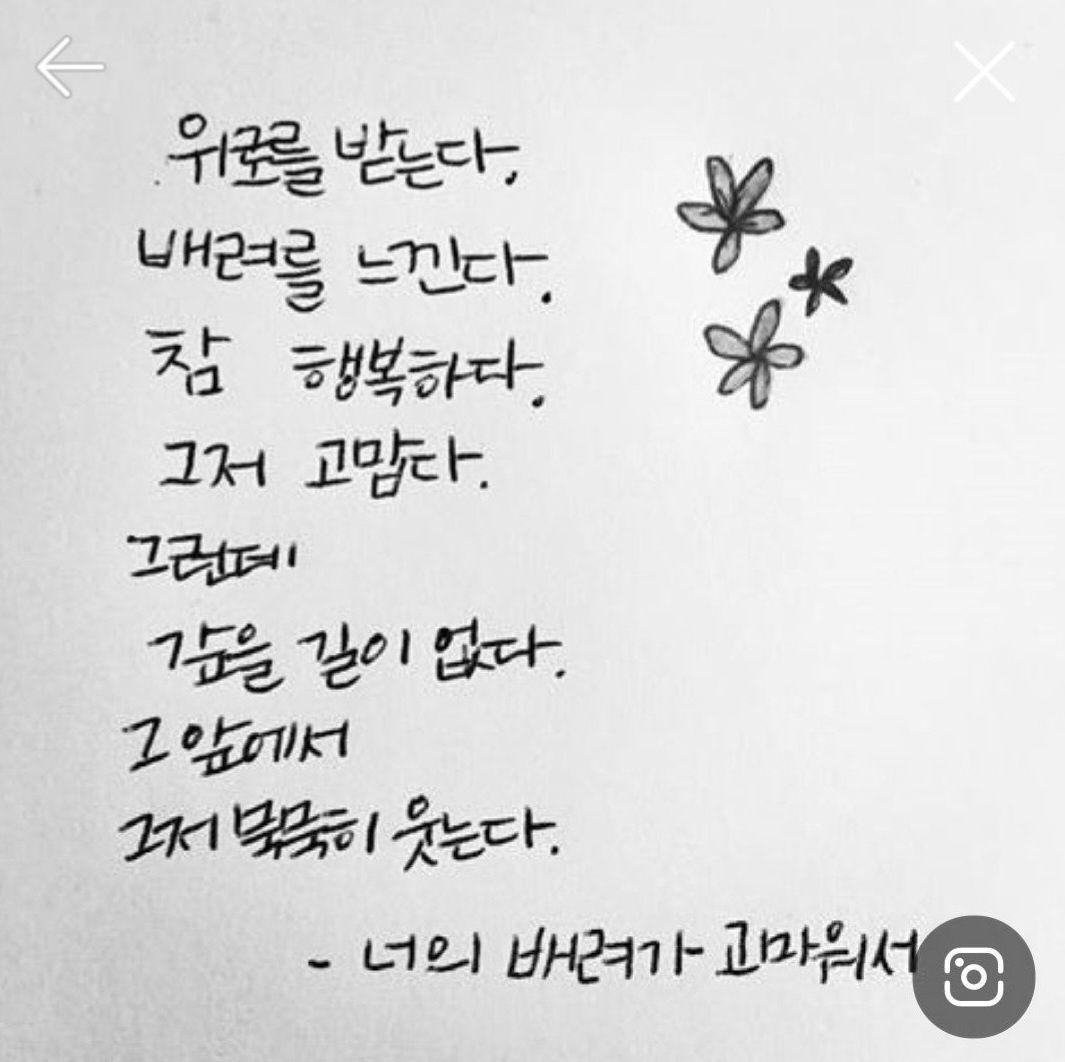 위로를 받는다.
배려를 느낀다.
참 행복하다.
그저 고맙다.
그런데
갚을 길이 없다.
그 앞에서
그저 묵묵히 웃는다.
- 너의 배려가 고마워서